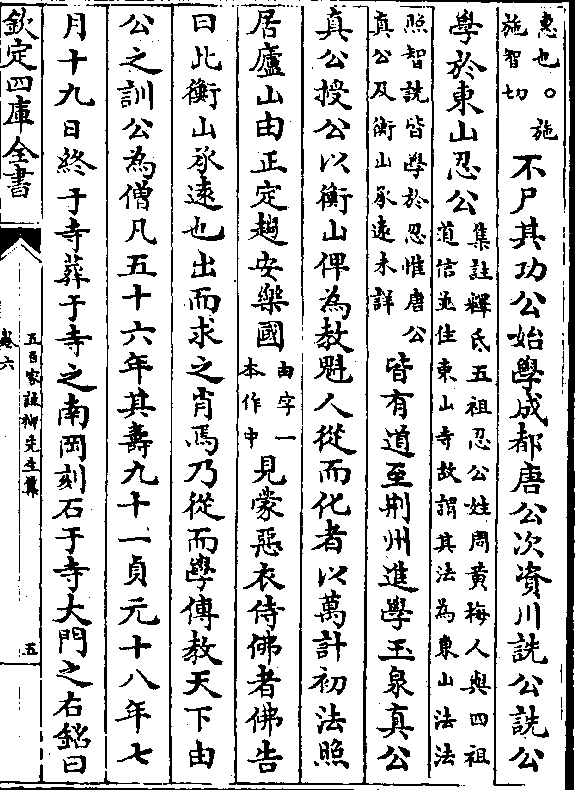 惠也○施
施智切
不尸其功公始學成都唐公次資川詵公詵公
學於東山忍公
集註釋氏五祖忍公姓周黃梅人與四祖
道信並住東山寺故謂其法為東山法法
照智詵皆學於忍惟唐公
真公及衡山承遠未詳
皆有道至荆州進學玉泉真公
真公授公以衡山俾為教魁人從而化者以萬計初法照
居廬山由正定趣安樂國
由字一
本作中
見蒙惡衣侍佛者佛告
曰此衡山承遠也出而求之肖焉乃從而學傳教天下由
公之訓公為僧凡五十六年其壽九十一貞元十八年七
月十九日終于寺葬于寺之南岡刻石于寺大門之右銘曰
欽定四庫全書
五百家註柳先生集
卷六
五